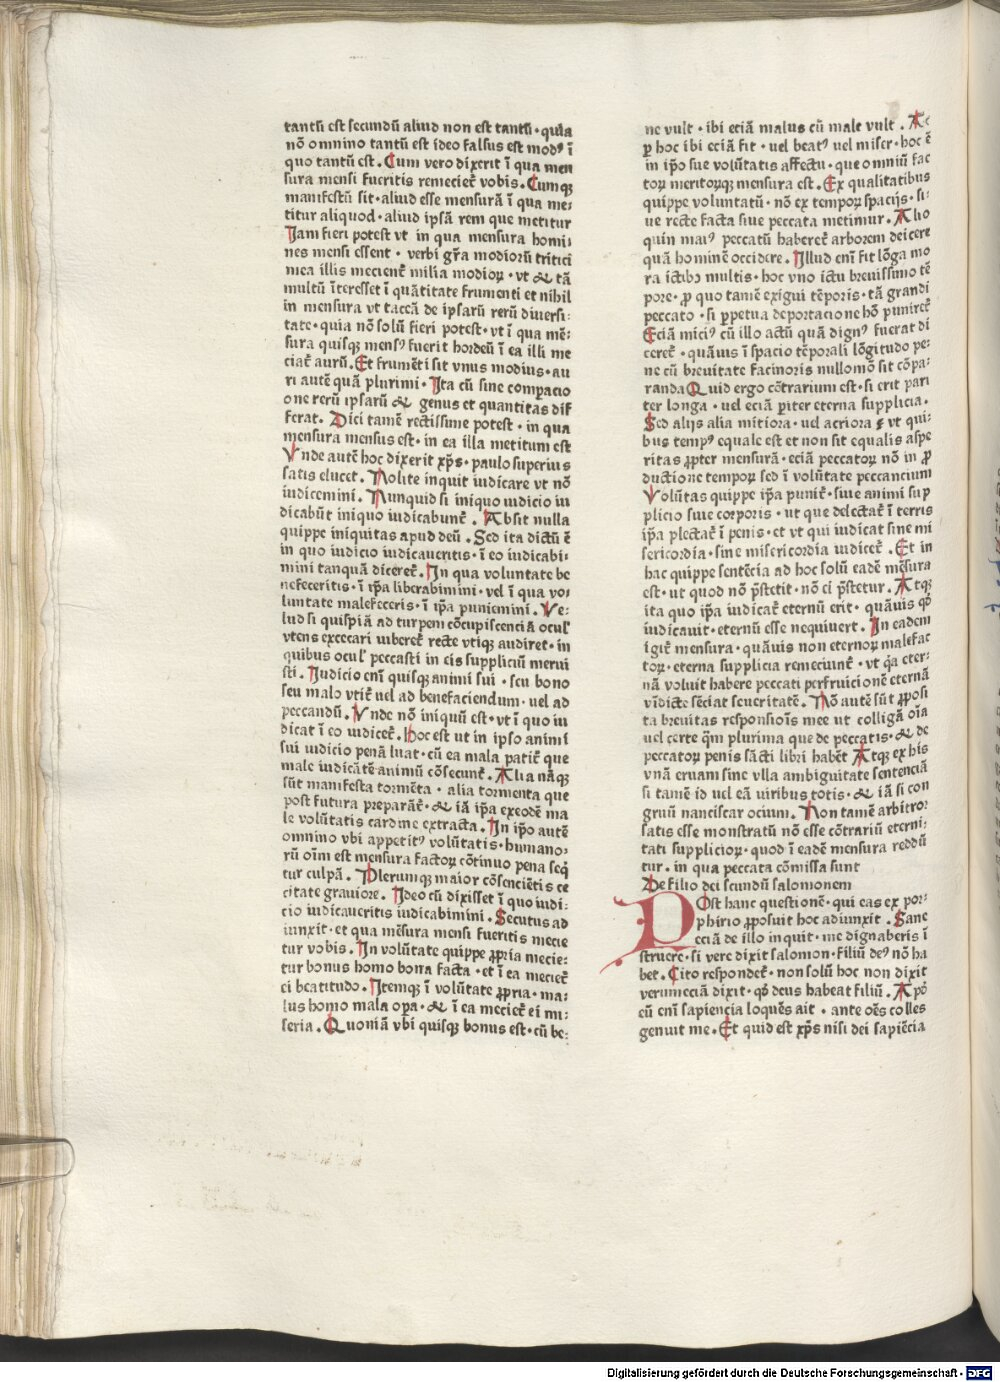 tantū est secundū aliud non est tantū · qula
nō omnino tantū est ideo falsus est modꝰ ī
quo tantū est . Cum vero dixerit ī qua men
sura mensi fueritis remecietˀ vobis . Cumqꝫ
manifestū sit · aliud esse mensurā ī qua me⸗
titur aliquod · aliud ipsā rem que metitur
Nam fieri potest vt in qua mensura homi⸗
nes mensi essent · verbi gr̄a modiorū tritici
mea illis mecientˀ milia modioꝝ · vt & tā
multū īteresset ī quātitate frumenti et nihil
in mensura vt taceā de ipsarū rerū diuersi⸗
tate · quia nō solū fieri potest · vt ī qua mē⸗
sura quisqꝫ mensꝰ fuerit hordeū ī ea illi me
ciatˀ aurū . Et frumēti sit vnus modius · au
ri autē quā plurimi · Ita cū sine compacio
one rerū ipsarū & genus et quantitas dif
ferat . Dici tamē rectissime potest · in qua
mensura mensus est · in ea illa metitum est
Vnde autē hoc dixerit xp̄s · paulo superius
satis elucet . Nolite inquit iudicare vt nō
iudicemini . Nunquid si iniquo iudicio iu
dicabūt iniquo iudicabuntˀ . Absit nulla
quippe iniquitas apud deū . Sed ita dictū ē
in quo iudicio iudicaueritis · ī eo iudicabi⸗
mini tanquā diceretˀ . In qua voluntate be
nefeceritis · ī ip̄a liberabimini · vel ī qua vo⸗
luntate malefeceris · ī ip̄a puniemini . Ve⸗
lud si quispiā ad turpem cōcupiscenciā oculˀ
vtens excecari iuberetˀ recte vtiqꝫ audiret · in
quibus oculˀ peccasti in eis suppliciū merui
sti . Iudicio enī quisqꝫ animi sui · seu bono
seu malo vtitˀ uel ad benefaciendum · uel ad
peccandū . Vnde nō iniquū est · vt ī quo iu
dicat ī eo iudicetˀ . Hoc est ut in ipso animi
sui iudicio penā luat · cū ea mala patitˀ que
male iudicātē animū cōsecuntˀ . Alia nāqꝫ
sūt manifesta tormēta · alia tormenta que
post futura preparātˀ · & iā ip̄a exeodē ma
le volūtatis cardine extracta . In ip̄o autē
omnino vbi appetitꝰ volūtatis · humano⸗
rū oīm est mensura factoꝝ cōtinuo pena seq̄
tur culpā . Plerumqꝫ maior cōsenciētis ce
citate grauiore . Ideo cū dixisset ī quo iudi⸗
cio iudicaueritis iudicabimini . Secutus ad
iunxit · et qua mēsura mensi fueritis mecie
tur vobis . In volūtate quippe ꝓpria mecie⸗
tur bonus homo bona facta · et ī ea mecietˀ
ei beatitudo . Itemqꝫ ī volūtate ꝓpria · ma⸗
lus homo mala op̄a · & ī ea mecietˀ ei mi⸗
seria . Quoniā vbi quisqꝫ bonus est · cū be⸗
ne vult · ibi eciā malus cū male vult . Ac
ꝑ hoc ibi eciā fit · uel beatꝰ uel miser · hoc ē
in ip̄o sue volūtatis affectu · que omniū fac
toꝝ meritoꝝqꝫ mensura est . Ex qualitatibus
quippe voluntatū · nō ex tempoꝝ spacijs · si⸗
ue recte facta siue peccata metimur . Alio
quin maiꝰ peccatū haberetˀ arborem deicere
quā hominē occidere . Illud enī fit lōga mo
ra ictibꝰ multis · hoc vno ictu breuissimo tē
pore · ꝓ quo tamē exigui tēporis · tā grandi
peccato · si ꝑpetua deportacione hō puniretˀ
Eciā miciꝰ cū illo actū quā dignꝰ fuerat di
ceretˀ · quāuis ī spacio tēporali lōgitudo pe⸗
ne cū breuitate facinoris nullomō sit cōpa⸗
randa Quid ergo cōtrarium est · si erit pari
ter longa · uel eciā ꝑiter eterna supplicia .
Sed alijs alia mitiora · uel acriora ꝫ vt qui⸗
bus tempꝰ equale est et non sit equalis aspe
ritas ꝓpter mensurā · eciā peccatoꝝ nō in ꝓ
ductione tempoꝝ sed ī volūtate peccancium
Volūtas quippe ip̄a punitˀ · siue animi sup
plicio siue corporis · ut que delectatˀ ī terris
ip̄a plectatˀ ī penis · et vt qui iudicat sine mi
sericordia · sine misericordia iudicetˀ . Et in
hac quippe sentēcia ad hoc solū eadē mēsura
est · ut quod nō p̄stetit · nō ei p̄stetur . Atqꝫ
ita quo ip̄a iudicatˀ eternū erit · quāuis qd̄
iudicauit · eternū esse nequiuert . In eadem
igitˀ mensura · quāuis non eternoꝝ malefac
toꝝ · eterna supplicia remeciuntˀ · vt q̄a eter⸗
nā voluit habere peccati perfruicionē eternā
vīdicte sēciat seueritatē . Nō autē sūt ꝓposi
ta breuitas responsiōis mee ut colligā oīa
uel certe q̄m plurima que de peccatis · & de
peccatoꝝ penis sācti libri habēt Atqꝫ ex his
vnā eruam sine vlla ambiguitate sentenciā
si tamē id uel eā uiribus totis · & iā si con
gruū nanciscar ocium . Non tamē arbitror
satis esse monstratū nō esse cōtrariū eterni⸗
tati supplicioꝝ · quod ī eadē mensura reddū
tur . in qua peccata cōmissa sunt
De filio dei scundū salomonem
POst hanc questionē · qui eas ex por⸗
phirio ꝓposuit hoc adiunxit . Sane
eciā de illo inquit · me dignaberis ī
struere · si vere dixit salomon · filiū deꝰ nō ha
bet . Cito respondetˀ · non solū hoc non dixit
verumeciā dixit · qd̄ deus habeat filiū . Apd̄
eū enī sapiencia loquēs ait · ante oēs colles
genuit me . Et quid est xp̄s nisi dei sapiēcia
Digitalisierung gefördert durch die Deutsche Forschungsgemeinschaft - DFG